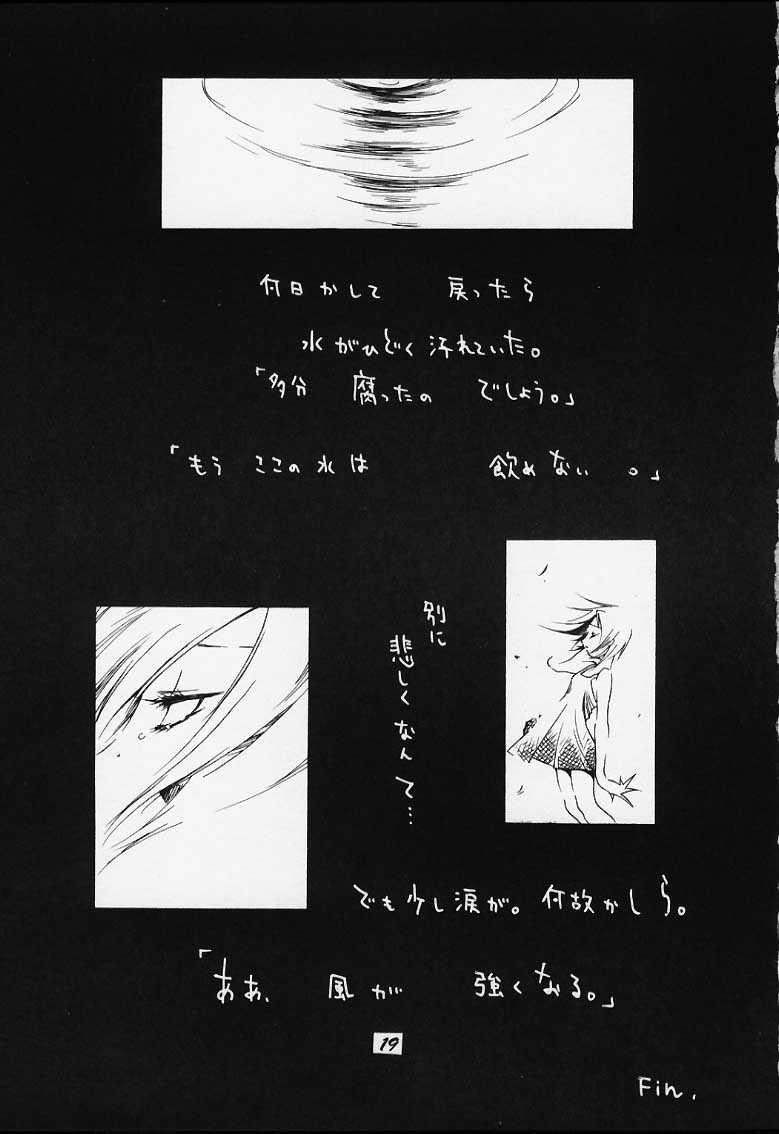 何日かして 戻ったら
水がひどく汚れていた。
「多分 腐ったの でしょう。」
「もう ここの水は 飲めない 。」
別に
悲しくなんて…
でも少し涙が。何故かしら。
「ああ、 風が 強くなる。」
19
Fin.